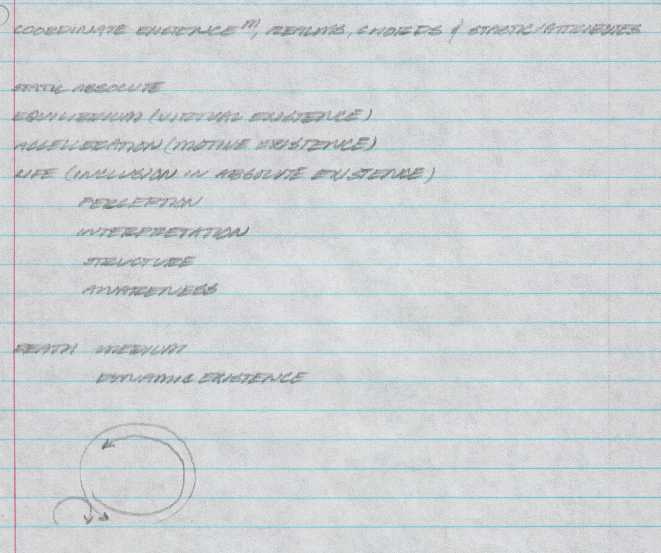 COORDINATE EXISTENCE M, REALMS, CHORDS & STATIC/ATTRIBUTES
STATIC ABSOLUTE
EQUILIBRIUM (VIRTUAL EXISTENCE)
ACCELLERATION (MOTIVE EXISTENCE)
LIFE (INCLUSION IN ABSOLUTE EXISTENCE)
PERCEPTION
INTERPRETATION
STRUCTURE
AWARENESS
DEATH MEDIUM
DYNAMIC EXISTENCE